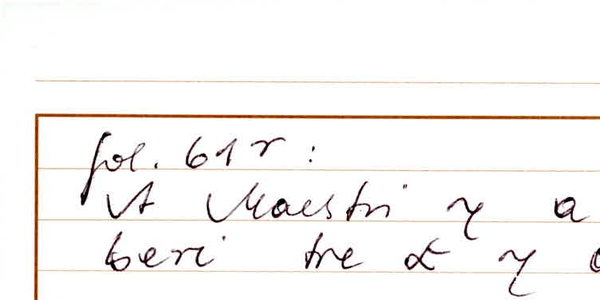 fol. 61r:
A Maestri γ a
beri tre α γ